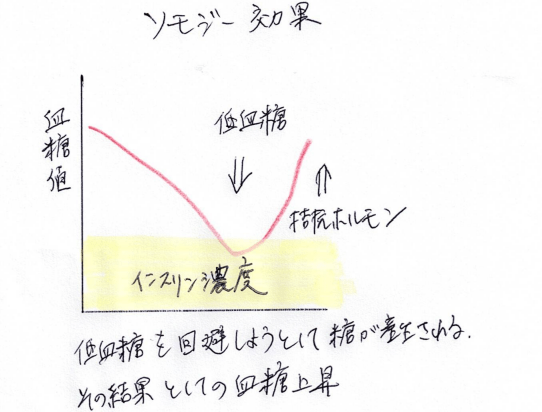 ソモジー効果
血糖値
低血糖
拮抗ホルモン
インスリン濃度
低血糖を回避しようとして糖が産生される.
その結果としての血糖上昇